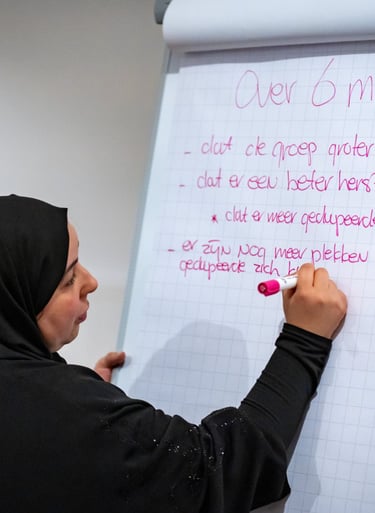 Over 6 m
- dat de groep groter
- dat er een beter hers
* dat er meer gedupeerde
- er zijn nog meer plekken
gedupeerde zich